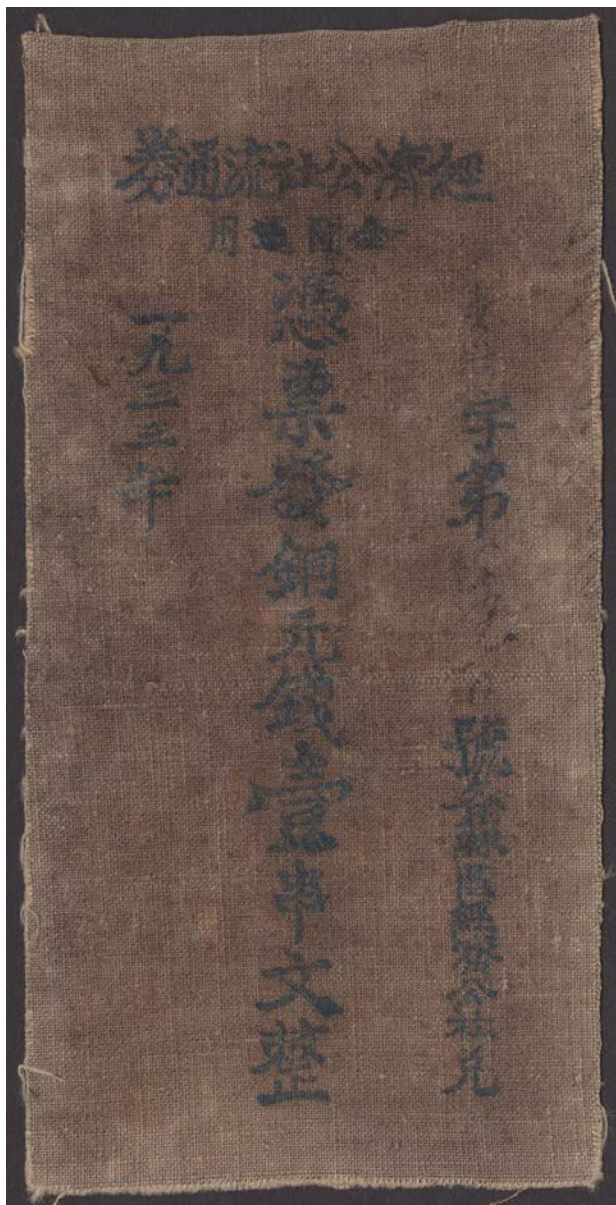 經濟公社流通券
全國通用
字第
號 縣區經濟公社兌
憑票發銅元錢壹串文整
一九三三年